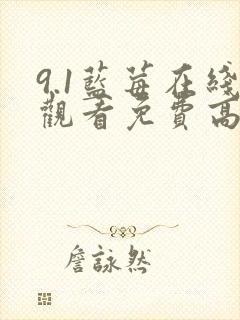 9.1藍莓在綫
觀看免費高
詹詠然